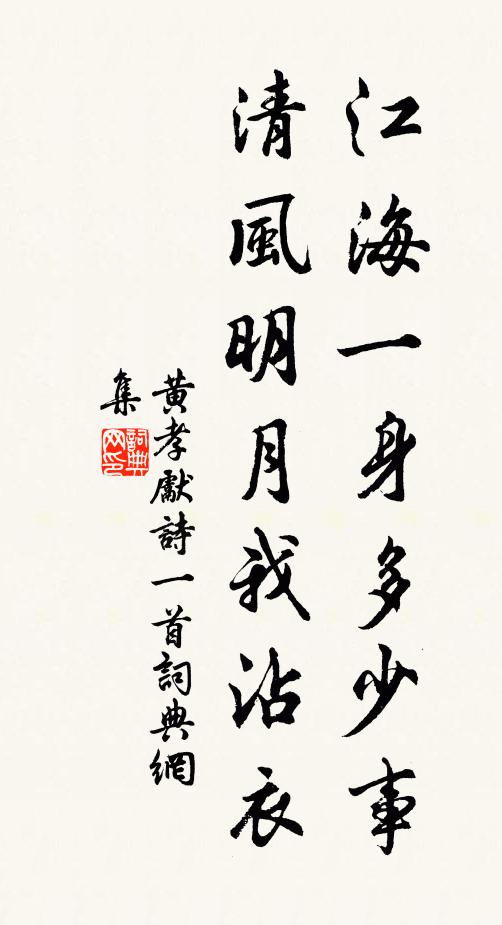 江海一身多少事
清風明月我沾衣
黄孝獻詩一首詞典網
集
詞典网印